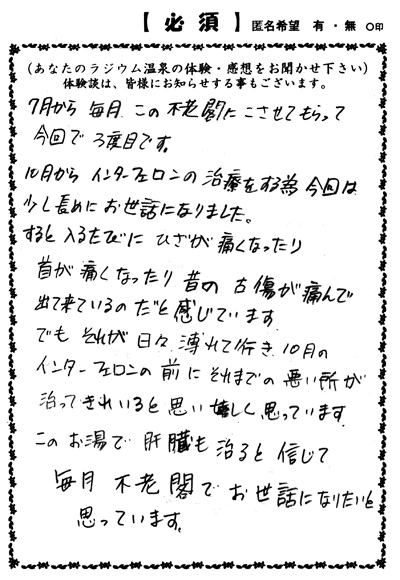 【必須】 匿名希望 有・無 〇印
(あなたのラジウム温泉の体験・感想をお聞かせ下さい)
体験談は、皆様にお知らせする事もございます。
7月から 毎月 この 不老閣に こさせてもらって
今回で 3度目です。
10月から インターフェロンの 治療をする為 今回は
少し長めに お世話になりました。
すると 入るたびに ひざが 痛くなったり
首が 痛くなったり 昔の 古傷が痛んで
出て来ているのだと感じています
でも それが 日々 薄れて行き 10月の
インターフェロンの 前に それまでの 悪い所が
治ってきれいると 思い 嬉しく 思っています
この お湯で 肝臓も 治ると 信じて
毎月 不老閣で お世話になりたいと
思っています。